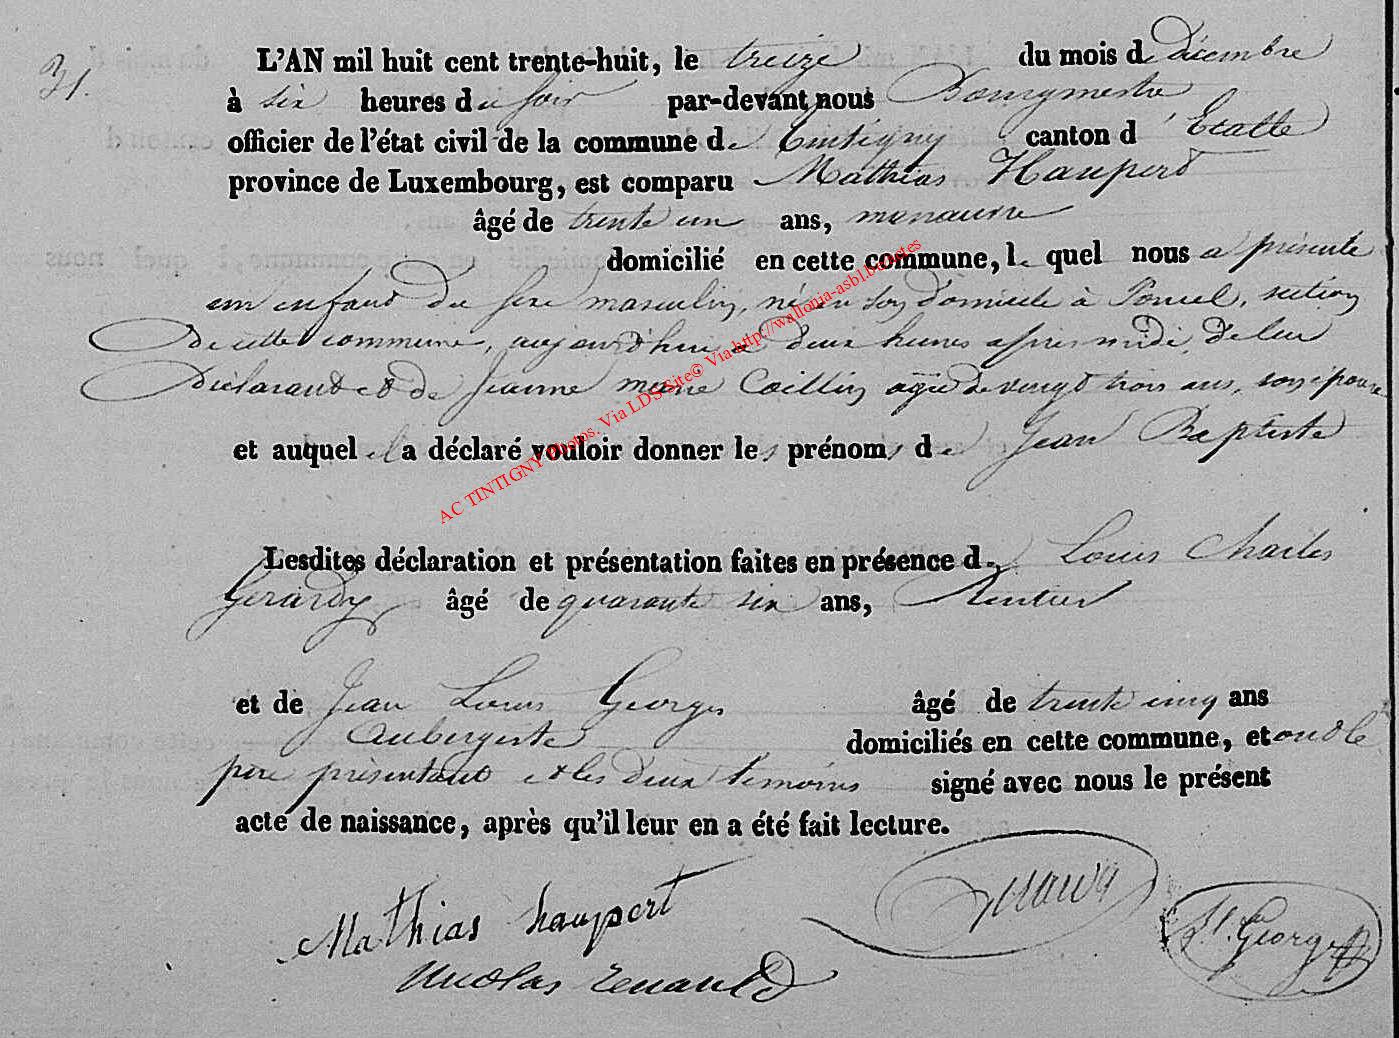 31.
L'AN mil huit cent trente-huit, le treize du mois de décembre
à six heures du soir par-devant nous Bourgmestre
officier de l'état civil de la commune de Tintigny canton d'Etalle
province de Luxembourg, est comparu Mathias Haupert
âgé de trente un ans, manœuvre
domicilié en cette commune, le quel nous a présenté
un enfant du sexe masculin, né en son domicile à Poncel, section
de cette commune, aujourd'hui à deux heures après midi, de lui
déclarant et de Jeanne Marie Collin agée de vingt trois ans, son épouse
et auquel il a déclaré vouloir donner les prénoms de Jean Baptiste
Lesdites déclaration et présentation faites en présence de Louis Charles
Gerardy âgé de quarante six ans, Rentier
et de Jean Louis Georges âgé de trente cinq ans
Aubergiste domiciliés en cette commune, et ont le
père présentant et les deux témoins signé avec nous le présent
acte de naissance, après qu'il leur en a été fait lecture.
Mathias haupert
Nicolas Renauld
Georges
AC TINTIGNY Photos. Via LDS Site© Via http://wallonia-asbl.be/actes